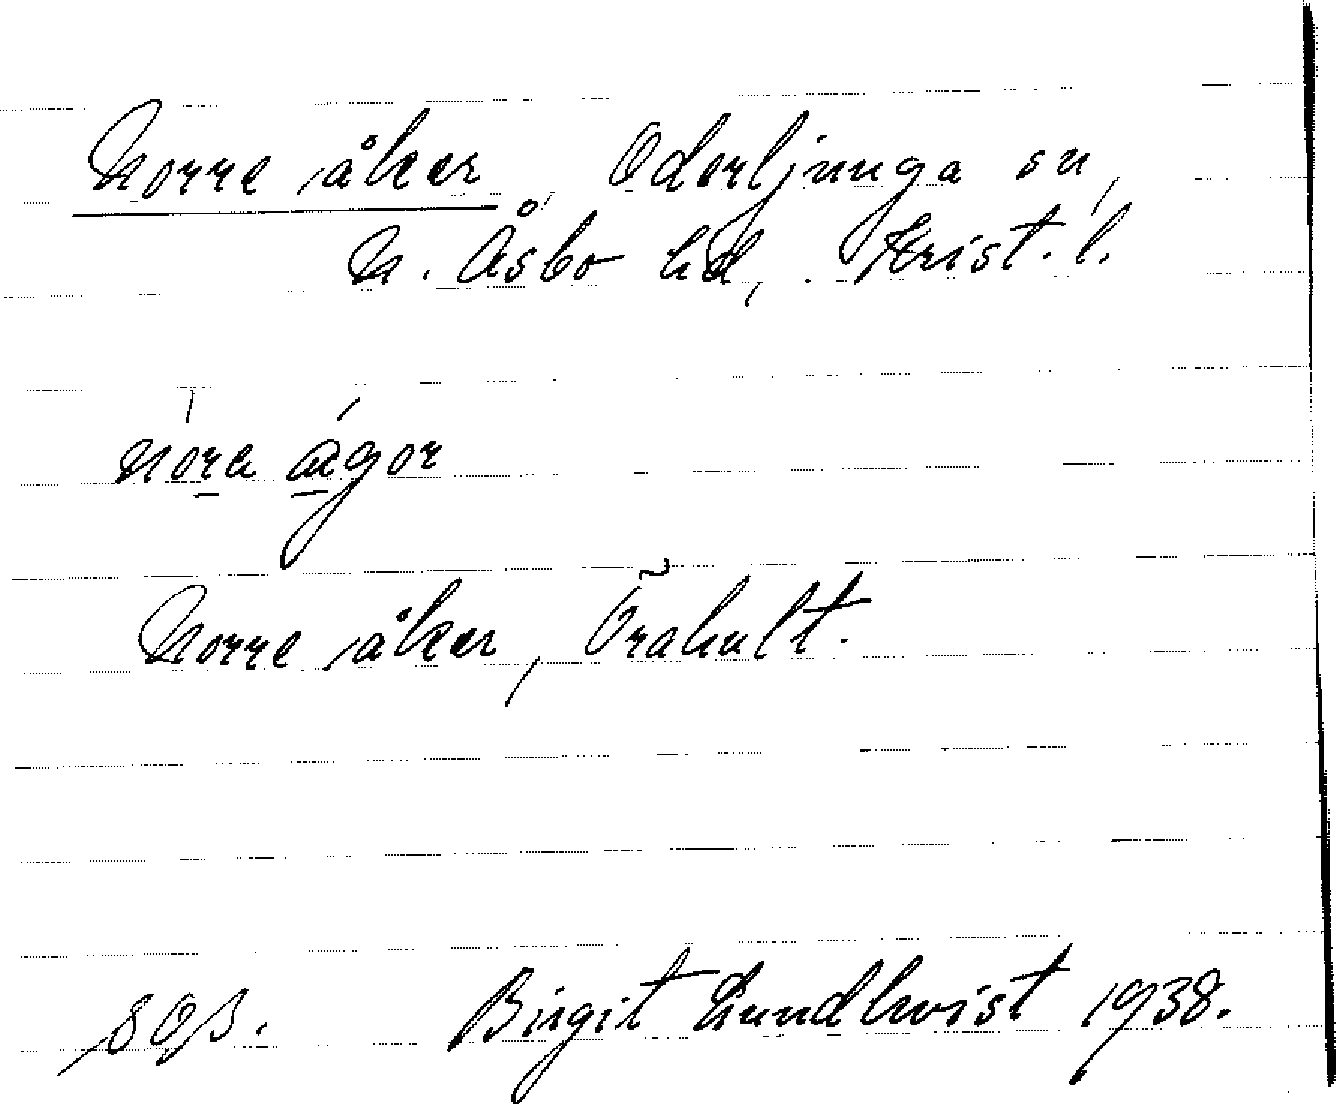 Norre åker, Oderljunga sn,
N. Åsbo hd, Krist. l.
nora ågor
Norre åker, Örahult.
Birgit Lundkvist 1938.